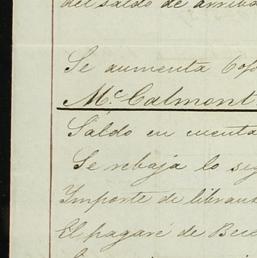 del saldo de arriba
Se aumenta 60
McCalmont
Saldo en cuenta
Se rebaja lo
Importe de
El pagaré de